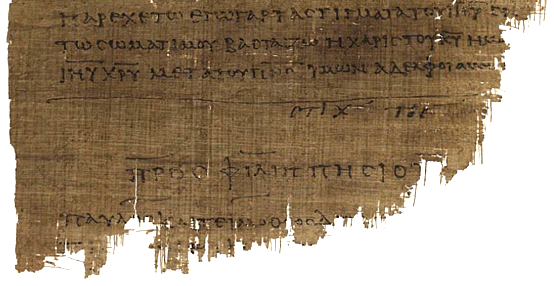 ΠΑΡΕΧΕΤΩ ΕΓΩ ΓΑΡ ΤΑ ϹΤΙΓΜΑΤΑ ΤΟΥ Ι̅Η̅Υ̅
ΤΩ ϹΩΜΑΤΙ ΜΟΥ ΒΑϹΤΑΖΩ Η ΧΑΡΙϹ ΤΟΥ Κ̅Υ̅ ΗΜΩ
Ι̅Η̅Υ̅ Χ̅Ρ̅Υ̅ ΜΕΤΑ ΤΟΥ Π̅Ν̅Ϲ̅ ΥΜΩΝ ΑΔΕΛΦΟΙ ΑΜΗ
ϹΤΙΧ
ΠΡΟϹ ΦΙΛΙΠΠΗϹΙΟΥ
ΠΑΥΛΟϹ ΚΑΙ ΤΕΙΜΟΘΕΟϹ Δ